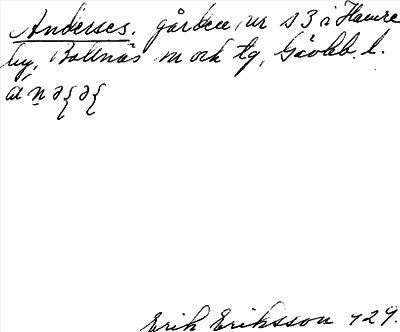 Anderses, gården nr s 3 i Hamre
by, Bollnäs sn och tg, Gävleb. l.
Erik Eriksson 429.